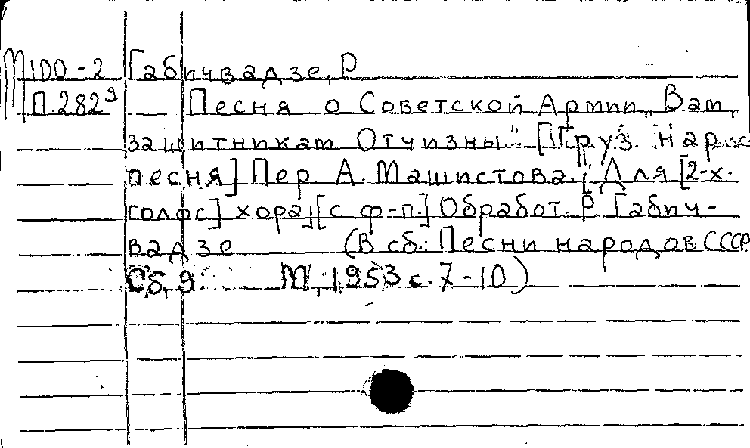 М100-2 Габичвадзе, Р
П.282⁹ Песня о Советской Армии „Вам,
защитникам Отчизны" [Груз. народ
песня] Пер А. Машистова. [Для [2-х-
голос] хора] [с ф-п.] Обработ. Р. Габич-
вадзе (В сб. Песни народов СССР
Сб, 9. М, 1953 с. 7-10)